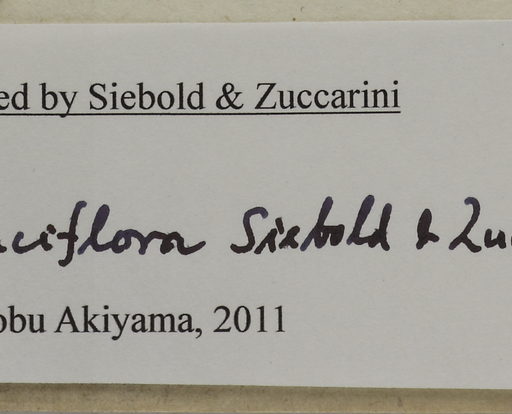 ed by Siebold & Zuccarini
ciflora Siebold & Zu
obu Akiyama, 2011